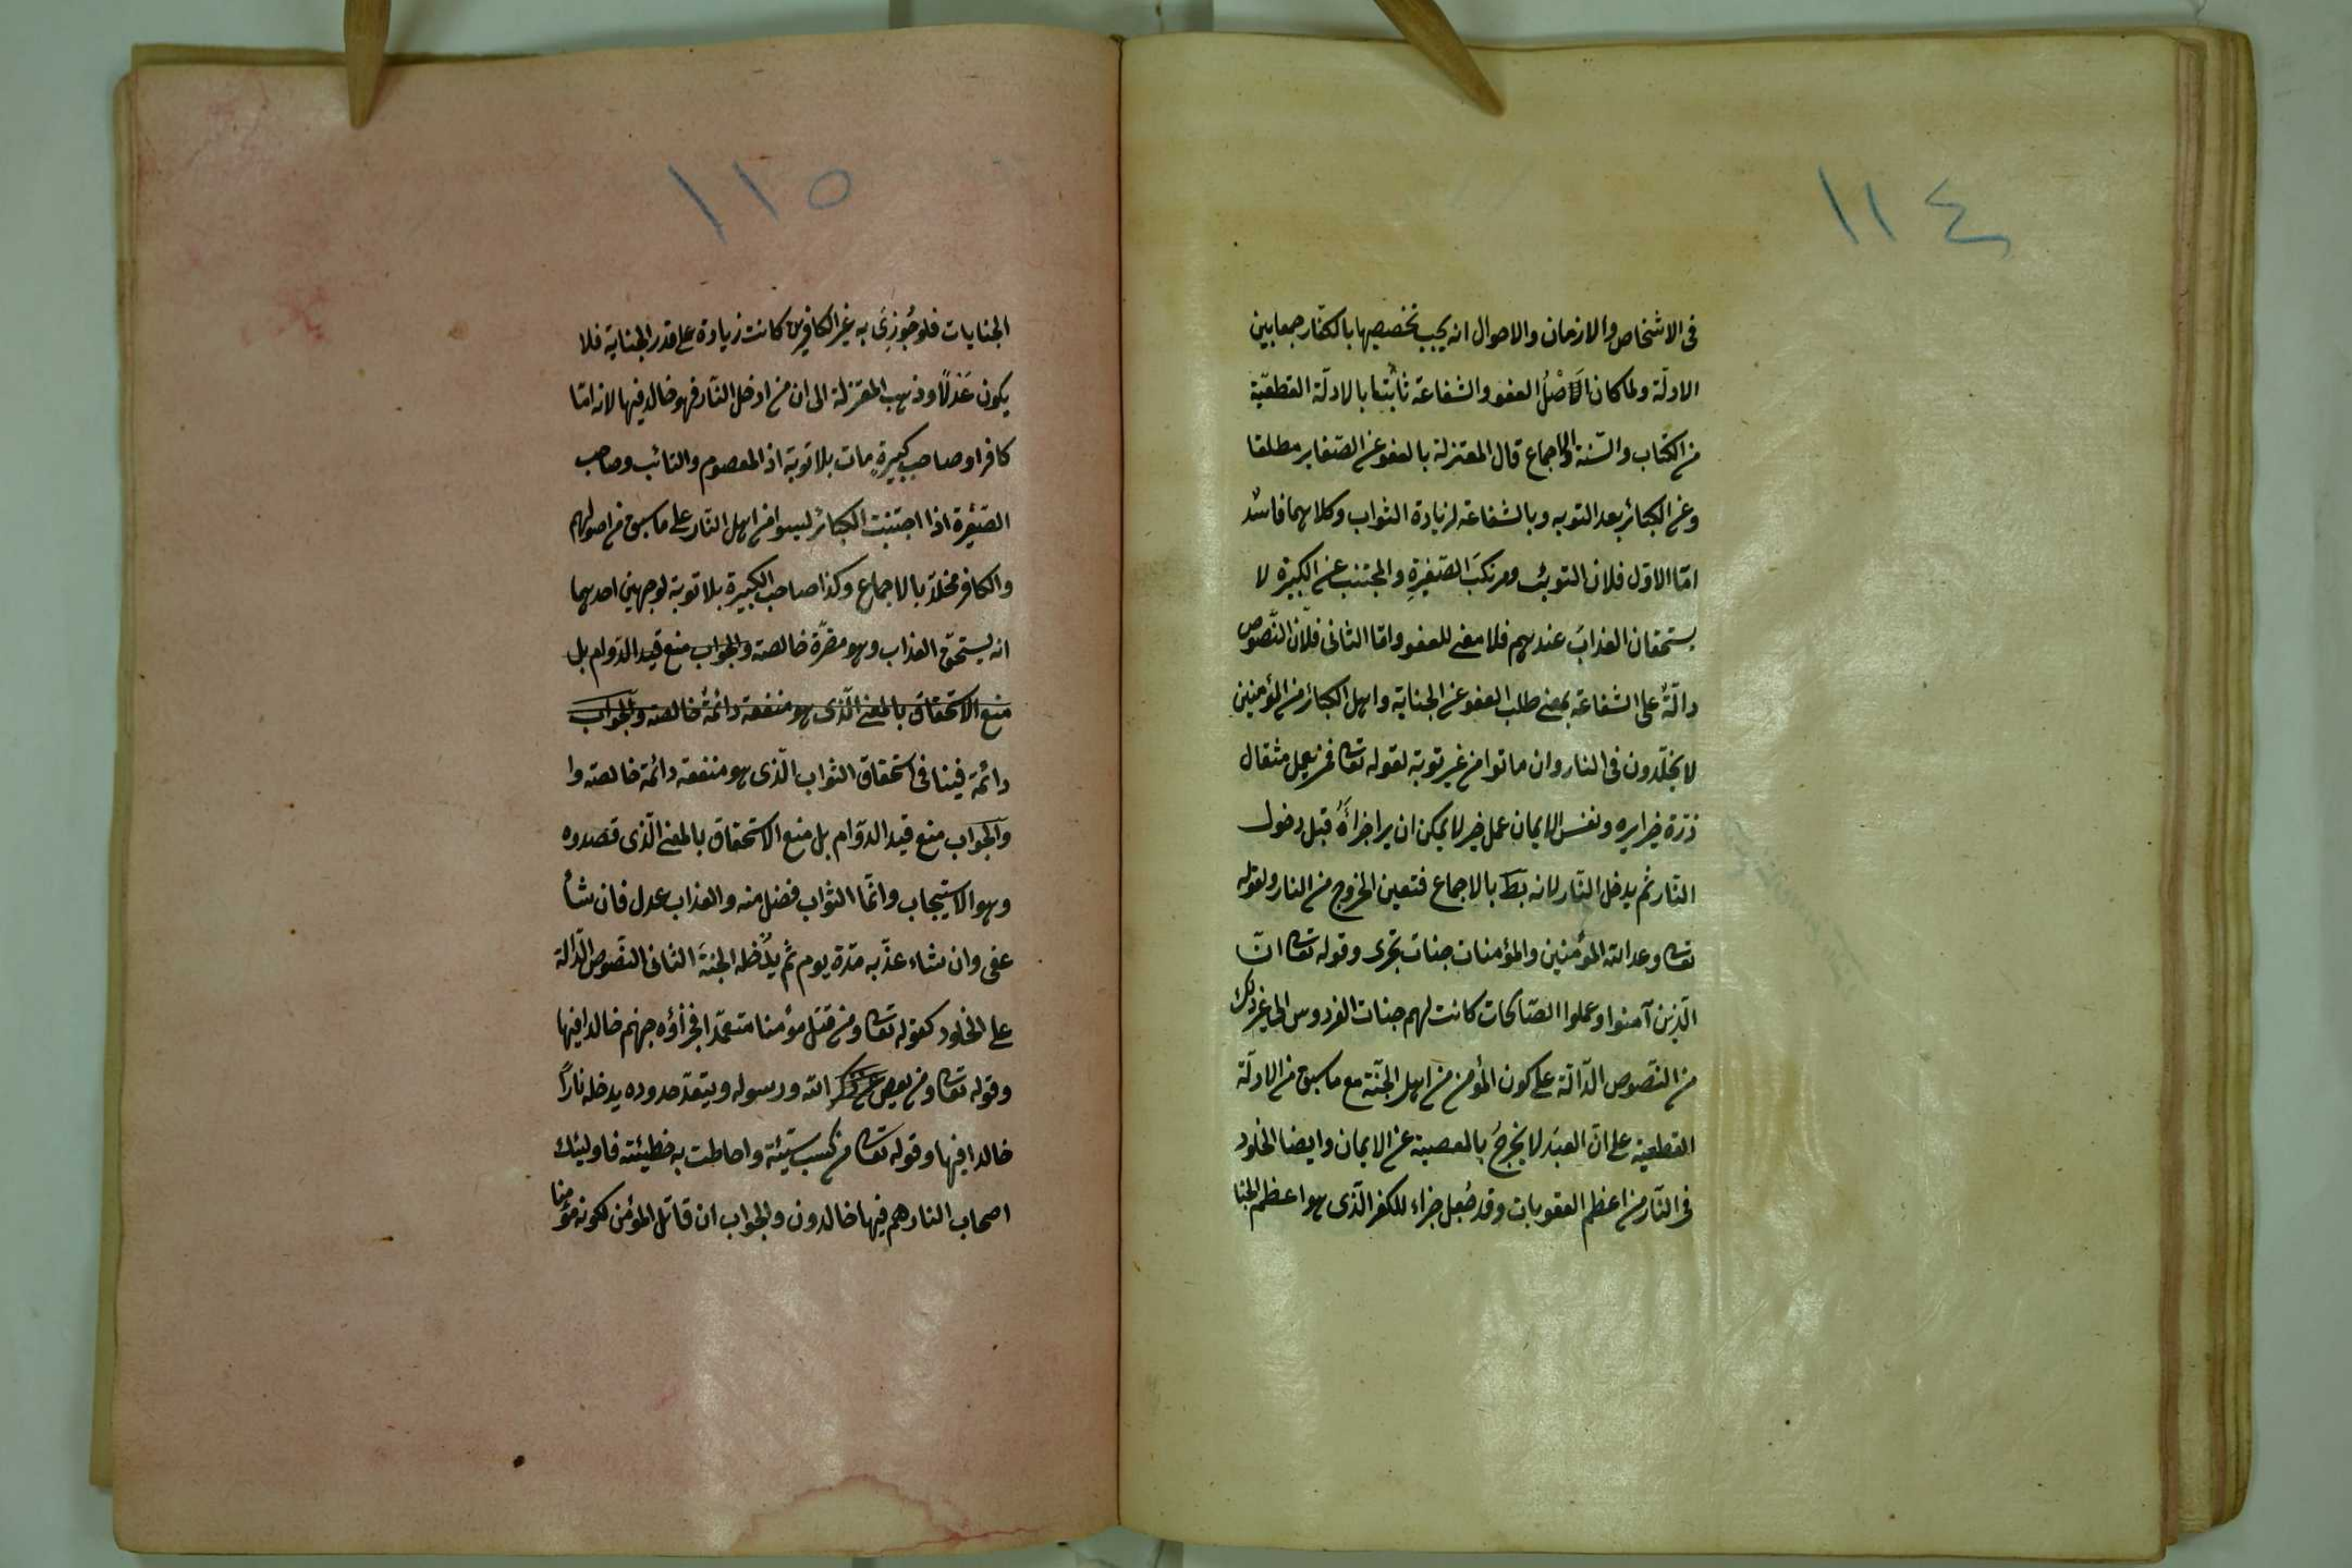 ١١٤
فى الاشخاص والازمان والاحوال انه يجب تخصيصها بالكفّار جمعا بين
الادلّة ولما كان الَاصْلُ العفو والشفاعة ثابتا بالادلّة القطعيّة
من الكتاب والسّنة والاجماع قال المعتزلة بالعفو عن الصّغاير مطلقا
وعن الكبائر بعد التوبه وبالشفاعة لزيادة الثواب وكلاهما فاسْد
امّا الاوّل فلان التوبئ ومرتكبَ الصّغيرةِ والمجتنب عن الكبيرة لا
يستحقان العذابَ عندهم فلا معنى للعفو وامّا الثانى فلانّ النّصوص
دالّةٌ على الشفاعة بمعنى طلب العفو عن الجناية واهل الكبائر من المؤمنين
لا يخلّدون فى النار وان ماتوا من غير توبة لقوله تعا فمن يعمل مثقال
ذرّة خيرا يره ونفس الايمان عمل خير لا يمكن ان يرا جزاءَهُ قبل دخول
النّار ثم يدخل النّار لانه بط بالاجماع فتعين الخروج من النار ولقوله
تعا وعد الله المؤمنين والمؤمنات جنات تجرى وقوله تعا انّ
الّذين آمنوا وعملوا الصّالحات كانت لهم جنات الفردوس الى غير ذلك
من النّصوص الدّالّة على كون المؤمن من اهل الجنّة مع ما سبق من الادلّة
القطعية على انّ العبدَ لا يخرجُ بالمعصية عن الايمان وايضا الخلود
فى النّار من اعظم العقوبات وقد جُعل جزاء للكفر الّذى هو اعظم الجنا
١١٥
الجنايات فلو جُوزِىَ به غير الكافرين كانت زيادة على قدر الجناية فلا
يكون عَدْلًا وذهب المعتزلة الى ان من ادخل النّار فهو خالد فيها لانه امّا
كافر او صاحب كبيرةٍ مات بلا توبة اذ المعصوم والتائب وصاحب
الصّغيرة اذا اجتنبت الكبائر ليسوا من اهل النّار على ما سبق من اصولهم
والكافر مخلّد بالاجماع وكذا صاحب الكبيرة بلا توبة لوجهين احدهما
انه يستحقّ العذاب وهو مضرّة خالصه والجواب منع قيد الدّوام بل
منع الاستحقاق بالمعنى الّذى هو منفعه دائمة خالصه والجواب
دائمة فينافى استحقاق الثواب الّذى هو منفعه دائمة خالصه وا
والجواب منع قيد الدوّام بل منع الاستحقاق بالمعنى الّذى قصدوه
وهو الاستيجاب وانّما الثواب فضل منه والعذاب عدل فان شأ
عفى وان شاء عذّبه مدّة يوم ثم يُدْخله الجنةَ الثانى النّصوص الدّالة
على الخلود كقوله تعا ومن قتل مؤمنا متعمّدا فجزأؤه جهنم خالدا فيها
وقوله تعا ومن يعص عن ذكر الله ورسوله ويتعدّ حدوده يدخله نارًا
خالدا فيها وقوله تعا من كسب سيّئة واحاطت به خطيئته فاوليئك
اصحاب النار هم فيها خالدون والجواب ان قاتل المؤمن لكونه مؤمنا